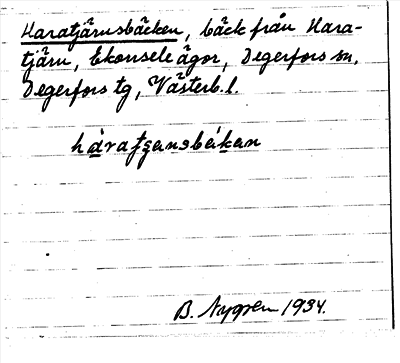 Haratjärnsbäcken, bäck från Hara-
tjärn, Ekorrsele ägor, Degerfors sn,
Degerfors tg, Västerb. l.
B. Nygren 1934.